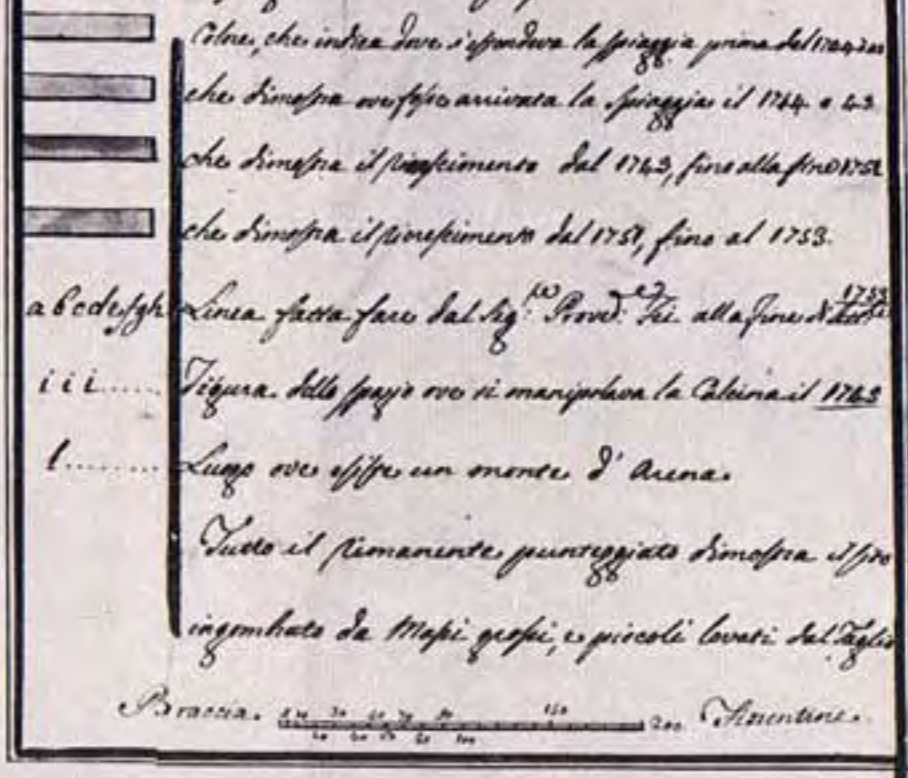 Colore, che indica dove s'estendeva la spiaggia prima del 1742
che dimostra ove fosse arrivata la spiaggia il 1744 o 43
che dimostra il rinascimento dal 1743, fino alla fine 1751
che dimostra il rincrescimento dal 1751, fino al 1753.
abcdefgh Linea fatta fare dal Sig.re Proved.re alla fine 1753
iii...... Figura dello spazio ove si manipolava la Calcina il 1743
l........ Luogo ove esiste un monte d'Arena.
Tutto il rimanente punteggiato dimostra il
ingombrato da Massi grossi, e piccoli levati dal Taglio
Braccia. 30 100 150 200 Fiorentine.